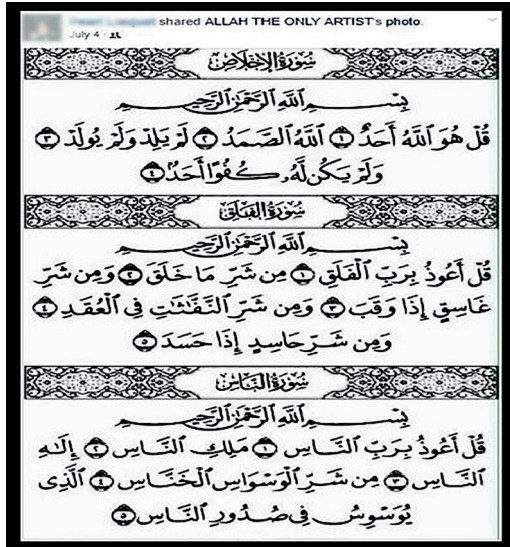 shared ALLAH THE ONLY ARTIST's photo.
July 4
سُورَةُ الإِخْلَاصِ
بِسْمِ ٱللَّهِ ٱلرَّحْمَٰنِ ٱلرَّحِيمِ
قُلْ هُوَ ٱللَّهُ أَحَدٌ ١ ٱللَّهُ ٱلصَّمَدُ ٢ لَمْ يَلِدْ وَلَمْ يُولَدْ ٣
وَلَمْ يَكُن لَّهُۥ كُفُوًا أَحَدٌۢ ٤
سُورَةُ الفَلَقِ
بِسْمِ ٱللَّهِ ٱلرَّحْمَٰنِ ٱلرَّحِيمِ
قُلْ أَعُوذُ بِرَبِّ ٱلْفَلَقِ ١ مِن شَرِّ مَا خَلَقَ ٢ وَمِن شَرِّ
غَاسِقٍ إِذَا وَقَبَ ٣ وَمِن شَرِّ ٱلنَّفَّٰثَٰتِ فِى ٱلْعُقَدِ ٤
وَمِن شَرِّ حَاسِدٍ إِذَا حَسَدَ ٥
سُورَةُ النَّاسِ
بِسْمِ ٱللَّهِ ٱلرَّحْمَٰنِ ٱلرَّحِيمِ
قُلْ أَعُوذُ بِرَبِّ ٱلنَّاسِ ١ مَلِكِ ٱلنَّاسِ ٢ إِلَٰهِ
ٱلنَّاسِ ٣ مِن شَرِّ ٱلْوَسْوَاسِ ٱلْخَنَّاسِ ٤ ٱلَّذِى
يُوَسْوِسُ فِى صُدُورِ ٱلنَّاسِ ٥